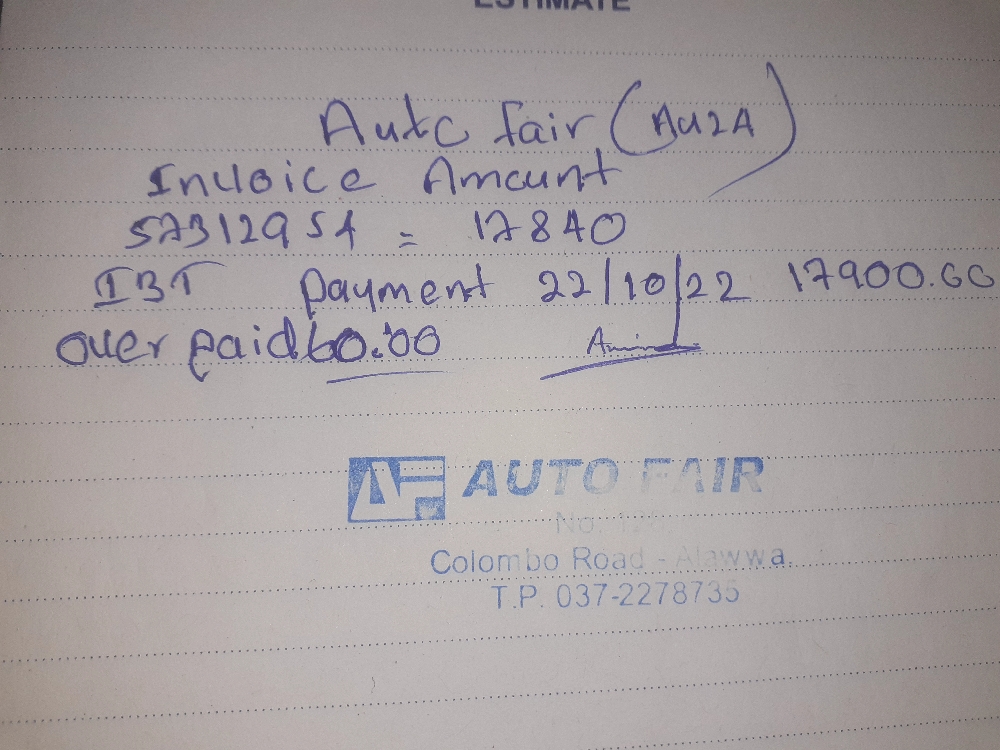 ESTIMATE
Auto fair (AU2A)
Invoice Amount
57312954 = 17840
IBT payment 22/10/22 17900.00
over paid 60.00
AF AUTO FAIR
No.
Colombo Road - Alawwa.
T.P. 037-2278735